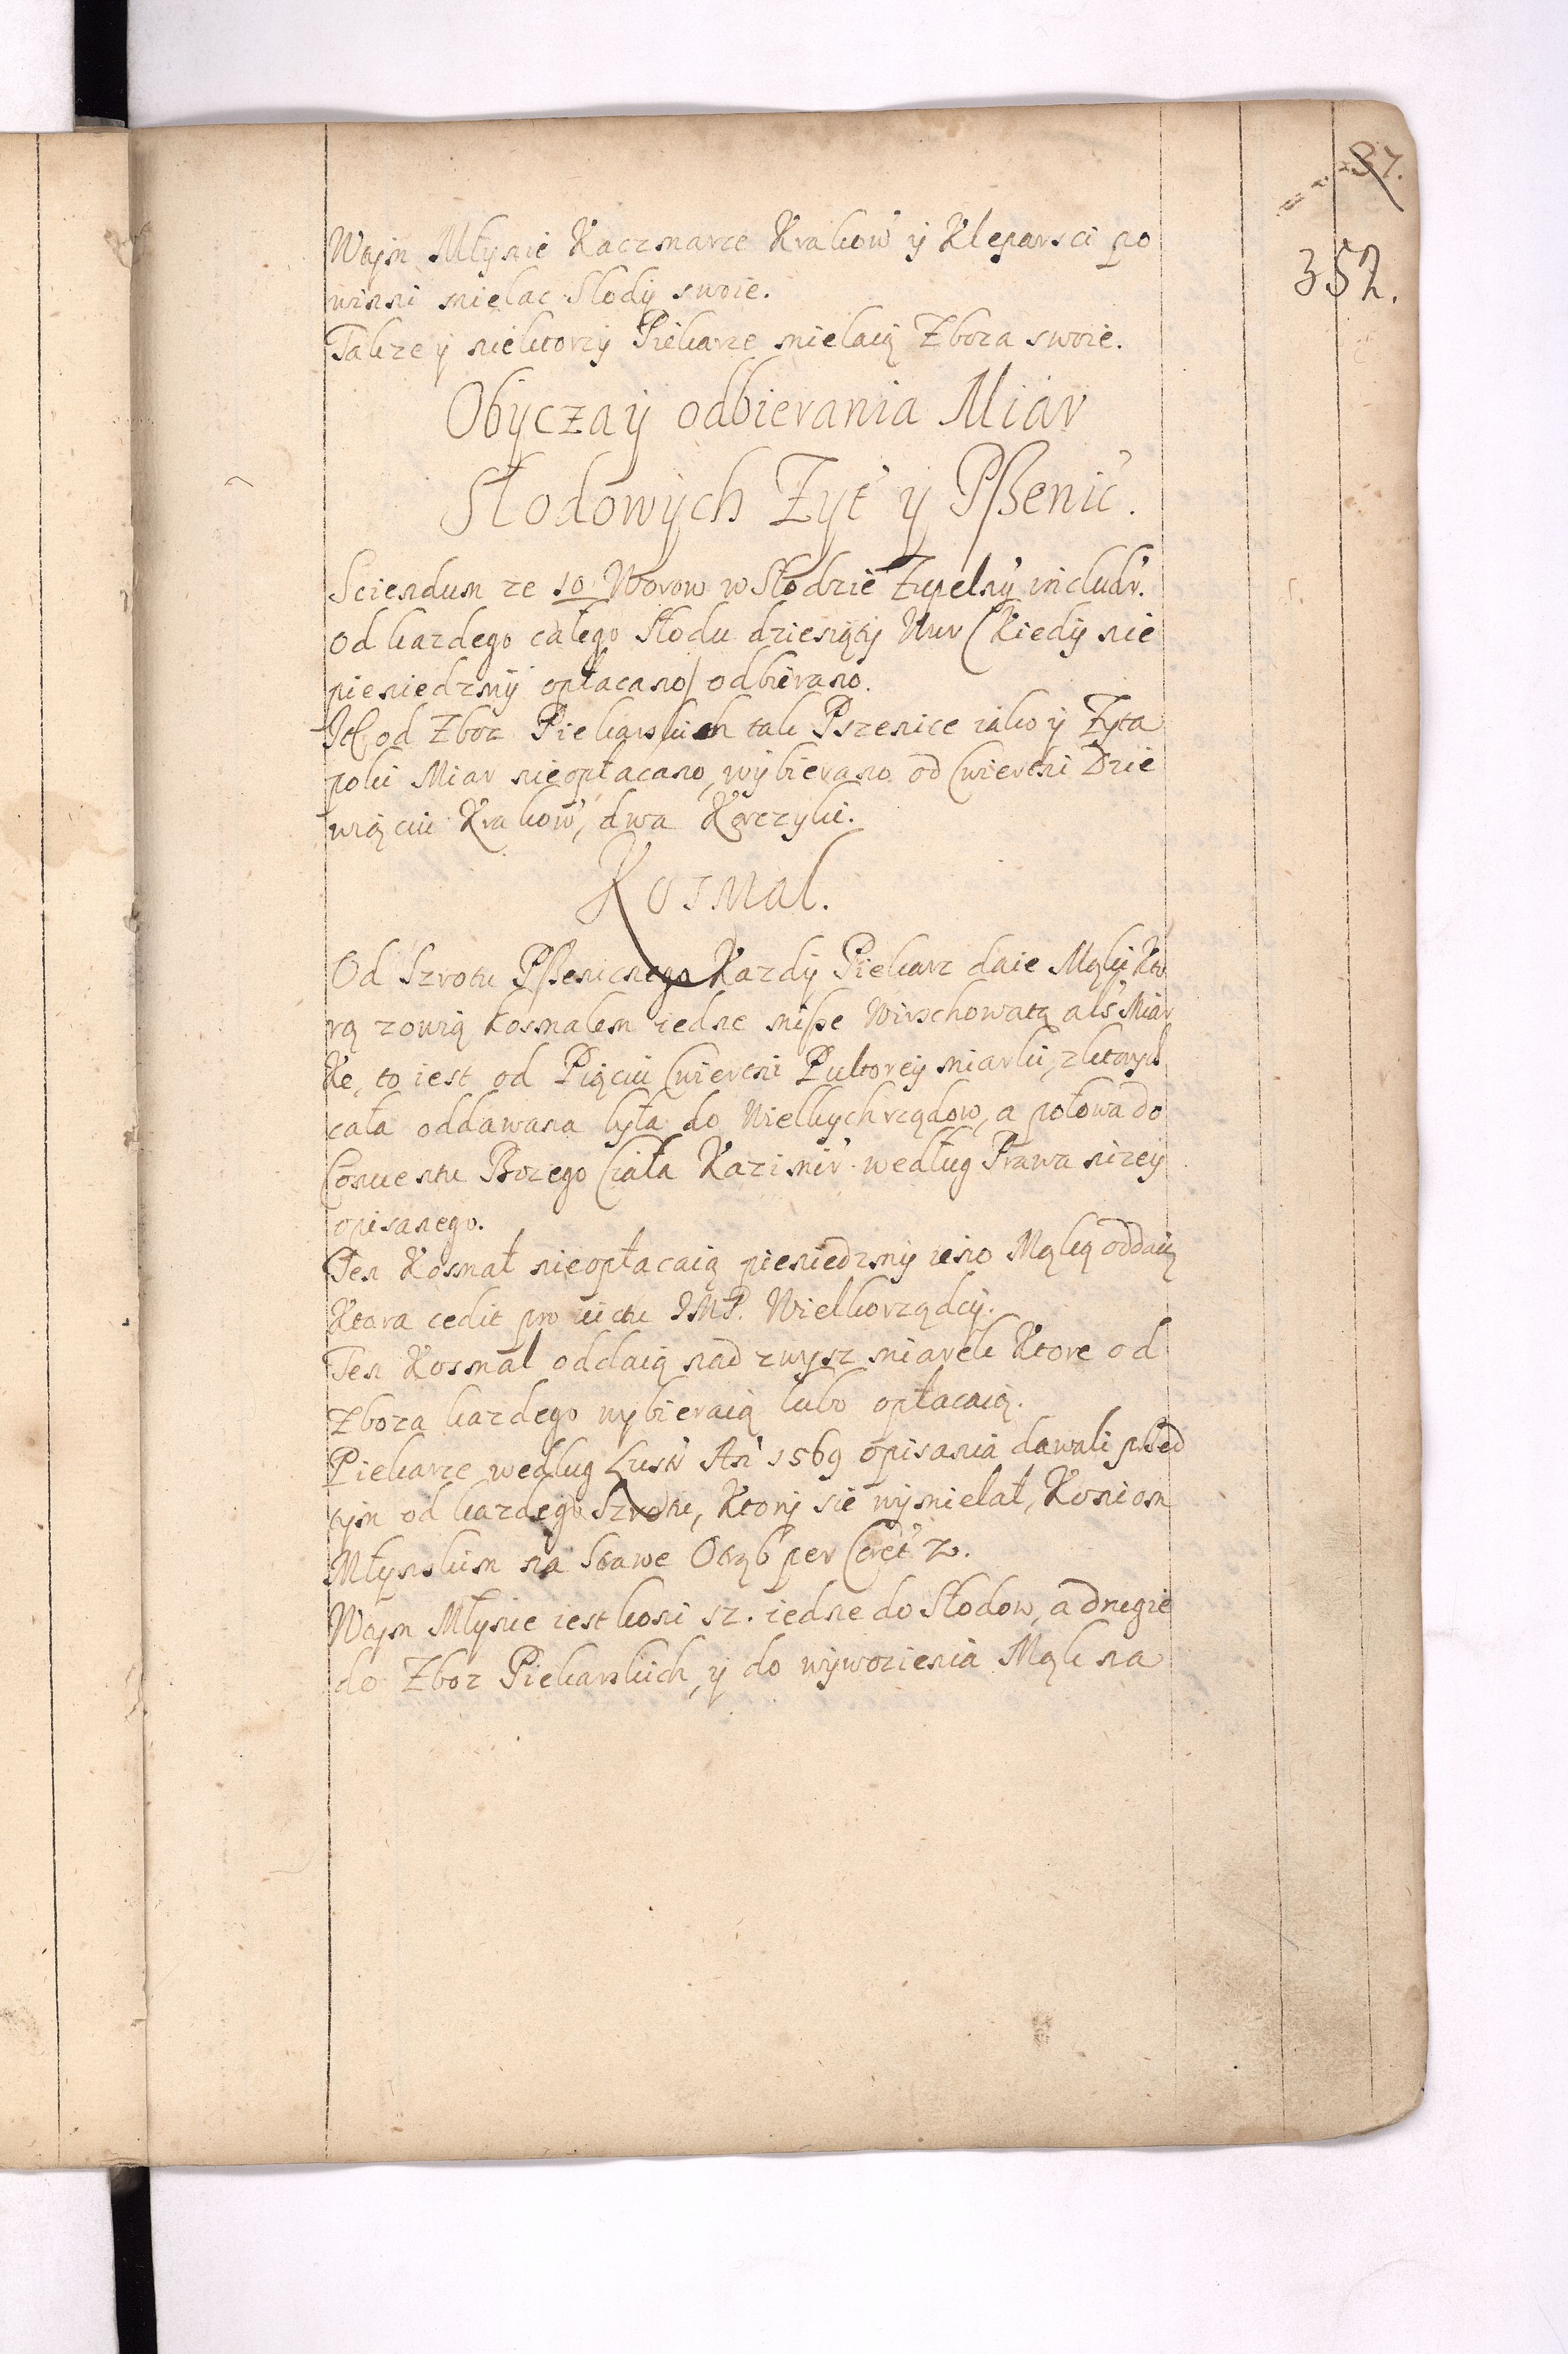 37.
352.
Wtym Młynie Kaczmarze Krakow̃ y Kleparsci po
winni mielac Słody swoie.
Takze y niektorzy Piekarze mielaią Zboza swoie.
Obyczay odbierania Miar
Słodowych Zyt y Pßenic̃.
Sciendum ze 10 Worow w Słodzie Zupelny includr̃.
Od kazdego całego Słodu dziesiąty Wur (kiedy nie
pieniedzmy opłacano) odbierano.
It. od Zboz Piekarskich tak Pszenice iako y Zyta
poki Miar nieopłacano, wybierano od Cwierćni Dzie
wiąciu Krakow̃, dwa Korczyki.
Kosmal.
Od Szrotu Pßenicnego Kazdy Piekarz daie Mąki Kto
rą zowią Kosmalem iedne miße Wirzchowatą als Miar
Ke, to iest od Piąciu Cwierćni Pultorey miarki, z ktorych
cała oddawana była do Wielkychrządow, a połowa do
Conuentu Bozego Ciała Kazimir̃. według Prawa nizey
opisanego.
Ten Kosmał nieopłacaią pieniedzmy ieno Mąką oddaią
Ktora cedit pro uictu JMP. Wielkorządcy.
Ten Kosmal oddaią nad zwysz miarek Ktore od
Zboza kazdego wybieraią lubo opłacaią.
Piekarze wedlug Lusr̃ An̄ 1569 opisania dawali przed
tym od kazdego Szrotu, Ktory sie wymielał, Koniom
Młynskim na Strawe Otrąb per Cret̃ 2.
Wtym Młynie iest koni 12. iedne do Słodow, a drugie
do Zboz Piekarskich, y do wywozienia Mąk na